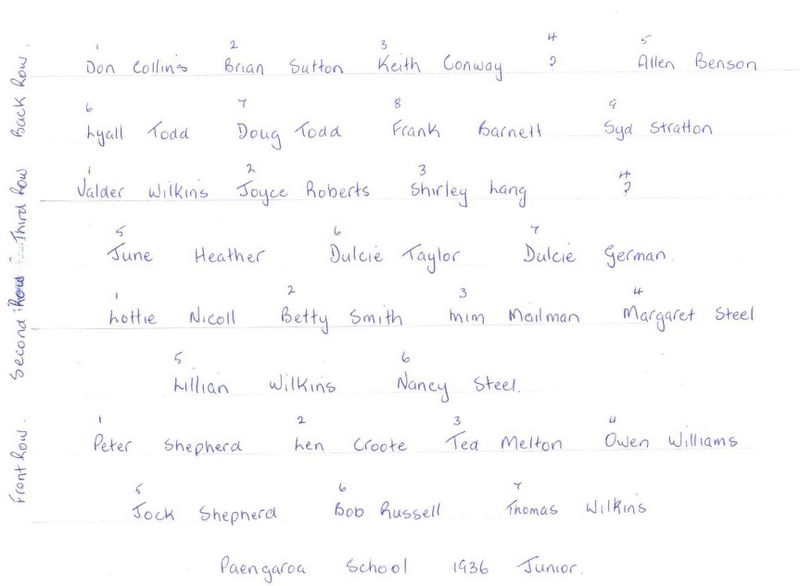 1 2 3 4 5
Back Row. Don Collins Brian Sutton Keith Conway ? Allen Benson
6 7 8 9
Lyall Todd Doug Todd Frank Barnett Syd Stratton
1 2 3 4
Third Row Valder Wilkins Joyce Roberts Shirley Lang ?
5 6 7
June Heather Dulcie Taylor Dulcie German.
1 2 3 4
Second Row Lottie Nicoll Betty Smith Mim Mailman Margaret Steel
5 6
Lillian Wilkins Nancy Steel.
1 2 3 4
Front Row. Peter Shepherd Len Croote Ted Melton Owen Williams
5 6 7
Jock Shepherd Bob Russell Thomas Wilkins
Paengaroa School 1936 Junior.